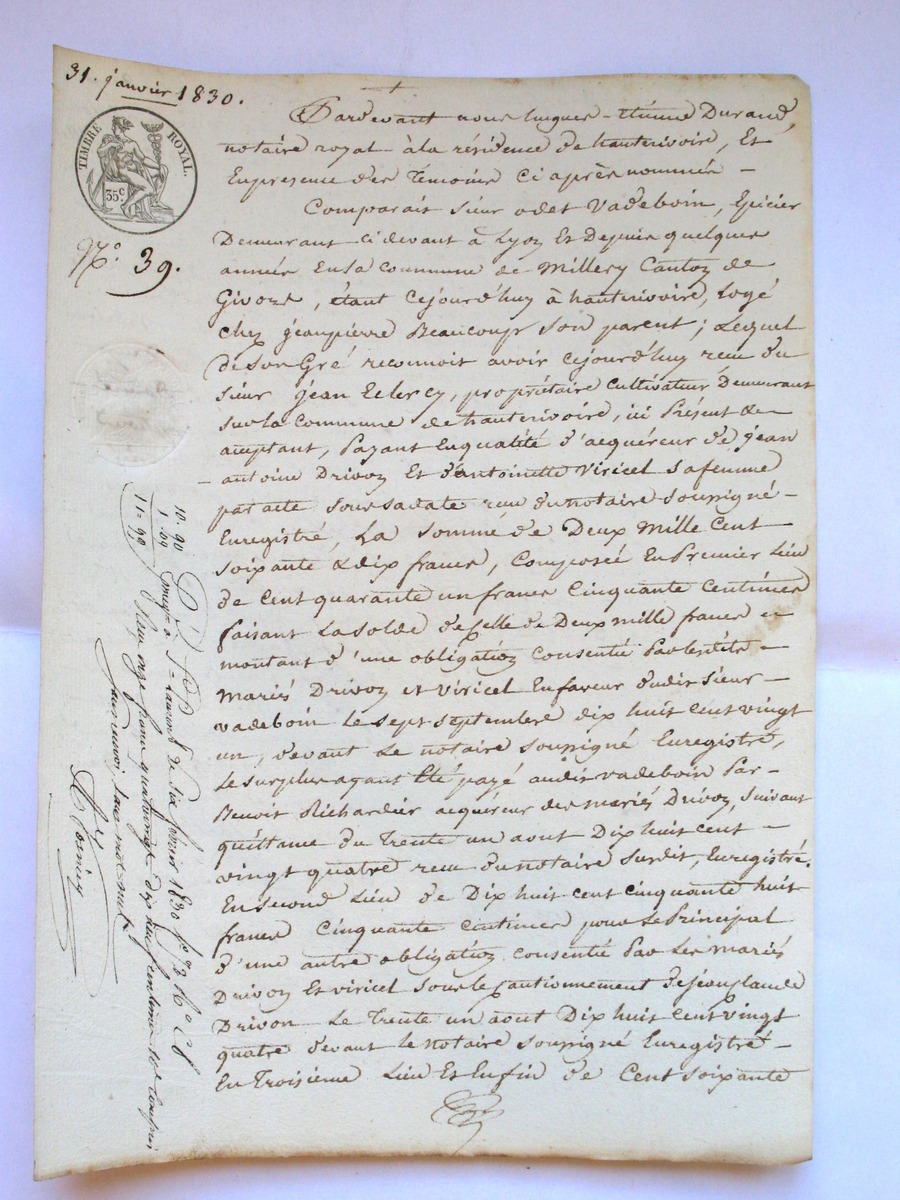 31. janvier 1830.
TIMBRE ROYAL.
35c
N.° 39.
Pardevant nous hugues-Etienne Durand,
notaire royal à la résidence de hauterivoire, Et
En présence des Témoins Ci après nommés -
Comparait sieur odet Vadeboin, Epicier
Demeurant ci devant à Lyon Et Depuis quelques
années En la Commune de Millery Canton de
Givors, étant cejourd'huy à hauterivoire, Logé
chez jean pierre Beaucoup son parent; Lequel
de son Gré reconnoit avoir cejourd'huy reçu du
sieur jean Leclercq, propriétaire Cultivateur Demeurant
sur la Commune de hauterivoire, ici Présent &
acceptant, Payant En qualité d'acquéreur de jean
antoine Drivon Et d'antoinette Viricel sa femme
par acte sous sa date reçu du notaire soussigné -
Enregistré, La somme de Deux Mille Cent
soixante & dix francs, Composée En Premier Lieu
de Cent quarante un francs Cinquante Centimes
faisant La solde de Celle de Deux mille francs
montant d'une obligation Consentie Par lesdits -
Mariés Drivon et Viricel En faveur dudit sieur
vadeboin le sept septembre dix huit Cent vingt
un, devant Le notaire soussigné Enregistré,
Le surplus ayant Eté payé audit vadeboin Par -
Benoit Richardier acquéreur des mariés Drivon, suivant
quittance du Trente un aout Dix huit Cent -
vingt quatre reçu du notaire susdit, Enregistré.
En second Lieu de Dix huit Cent Cinquante huit
francs Cinquante Centimes pour Le Principal
d'une autre obligation Consentie Par Les mariés
Drivon Et viricel sous le Cautionnement de jean Claude
Drivon Le Trente un aout Dix huit Cent vingt
quatre devant le notaire soussigné Enregistré -
En Troisième Lieu Et Enfin de Cent soixante
10. 90
1. 09
11= 99
Enregé à St Laurent de fév février 1830 fo 73 Ro C.
Reçu onze francs quatrevingt dix neuf centimes 10e compris
sans renvoi, sans mot nul.